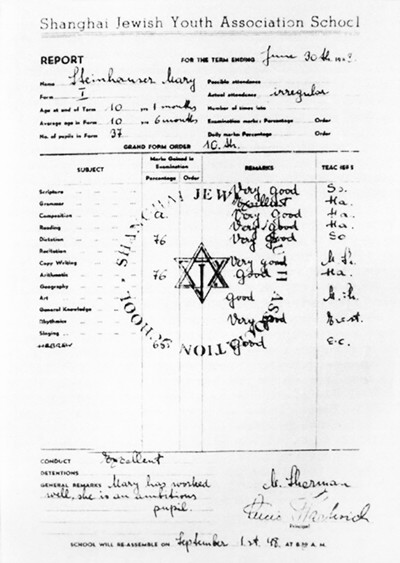 Shanghai Jewish Youth Association School
REPORT FOR THE TERM ENDING June 30th
Name Steinhauser Mary Possible attendance
Form I Actual attendance irregular
Age at end of Term 10 yrs 1 months Number of times late
Average age in Form 10 yrs 6 months Examination marks: Percentage Order
No. of pupils in Form 37 Daily marks Percentage Order
GRAND FORM ORDER 10.th.
SUBJECT Marks Gained in Examination REMARKS TEACHERS
Percentage Order
Scripture Very good So.
Grammar Excellent Ha.
Composition a. Very good Ha.
Reading Very good Ha.
Dictation 76 Very good So
Recitation
Copy Writing Very good
Arithmetic 76 Good Ha.
Geography
Art good
General Knowledge
Rhythmics Very good
Singing
HEBREW 65 Good E.C.
SHANGHAI JEWISH YOUTH ASSOCIATION SCHOOL
J Y
CONDUCT Excellent
DETENTIONS
GENERAL REMARKS Mary has worked
well, she is an ambitious
pupil.
Sherman
Principal
SCHOOL WILL RE-ASSEMBLE ON September 1.st. 48. AT 8.30 A. M.